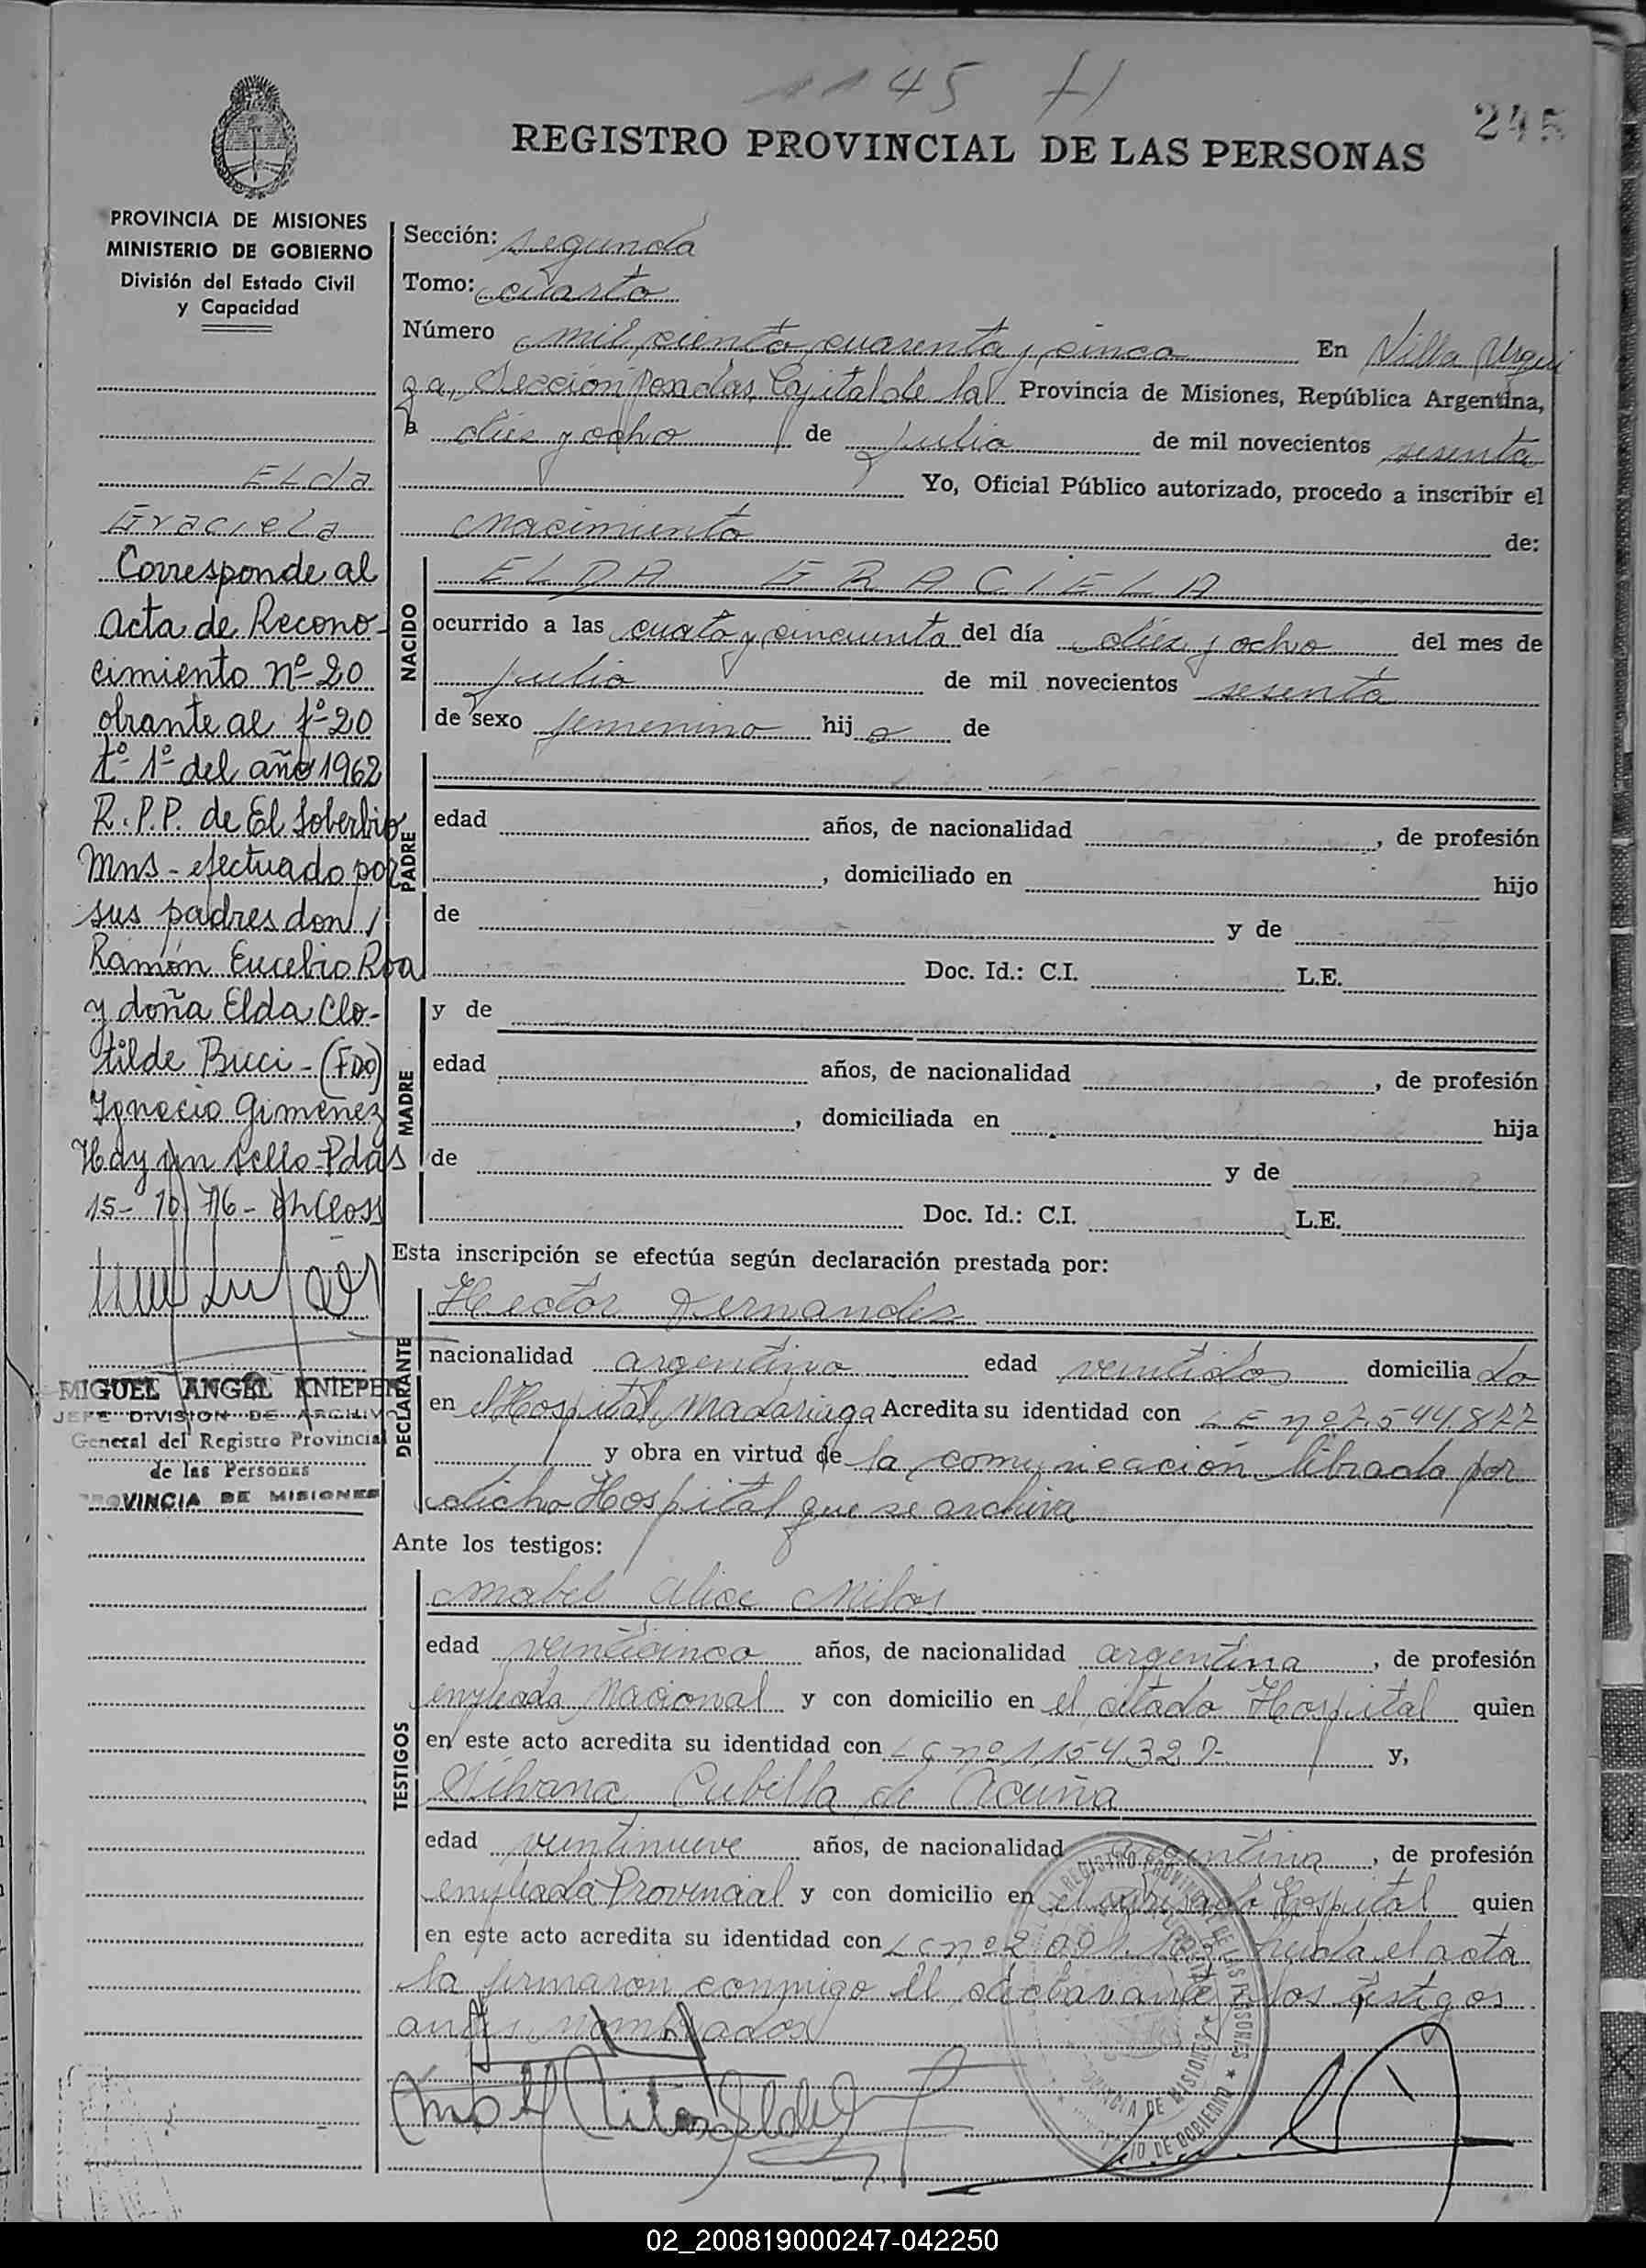 1145 H
245
REGISTRO PROVINCIAL DE LAS PERSONAS
PROVINCIA DE MISIONES
MINISTERIO DE GOBIERNO
División del Estado Civil
y Capacidad
Elda
Graciela
Corresponde al
acta de Recono-
cimiento nº 20
obrante al fº 20
tº 1º del año 1962
R.P.P. de El Soberbio
Mns - efectuado por
sus padres don
Ramón Eucebio Roa
y doña Elda Clo-
tilde Bucci - (FDO)
Ignacio Giménez
Hay un sello - Pdas
15- 10 76 -
MIGUEL ANGEL KNIEPER
JEFE DIVISION DE ARCHIVO
General del Registro Provincial
de las Personas
PROVINCIA DE MISIONES
Sección: segunda
Tomo: cuarto
Número mil ciento cuarenta y cinco En Villa Urqui
za, Sección Posadas, Capital de la Provincia de Misiones, República Argentina,
a diez y ocho de julio de mil novecientos sesenta
Yo, Oficial Público autorizado, procedo a inscribir el
nacimiento de:
NACIDO
ELDA GRACIELA
ocurrido a las cuatro y cincuenta del día diez y ocho del mes de
julio de mil novecientos sesenta
de sexo femenino hij a de
PADRE
edad años, de nacionalidad , de profesión
, domiciliado en hijo
de y de
Doc. Id.: C.I. L.E.
MADRE
y de
edad años, de nacionalidad , de profesión
, domiciliada en hija
de y de
Doc. Id.: C.I. L.E.
Esta inscripción se efectúa según declaración prestada por:
DECLARANTE
Hector Fernandez
nacionalidad argentino edad ventidos domicilia do
en el Hospital Madariaga Acredita su identidad con L E nº 7.544.877
y obra en virtud de la comunicación librada por
dicho Hospital que se archiva
Ante los testigos:
TESTIGOS
Mabel Alice Milos
edad venticinco años, de nacionalidad argentina , de profesión
empleada Nacional y con domicilio en el citado Hospital quien
en este acto acredita su identidad con L C nº 1.154.327 y,
Silvana Cubilla de Acuña
edad ventinueve años, de nacionalidad argentina , de profesión
empleada Provincial y con domicilio en el Hospital quien
en este acto acredita su identidad con L C nº 2 el acta
la firmaron conmigo el declarante y los testigos
antes nombrados
02_200819000247-042250